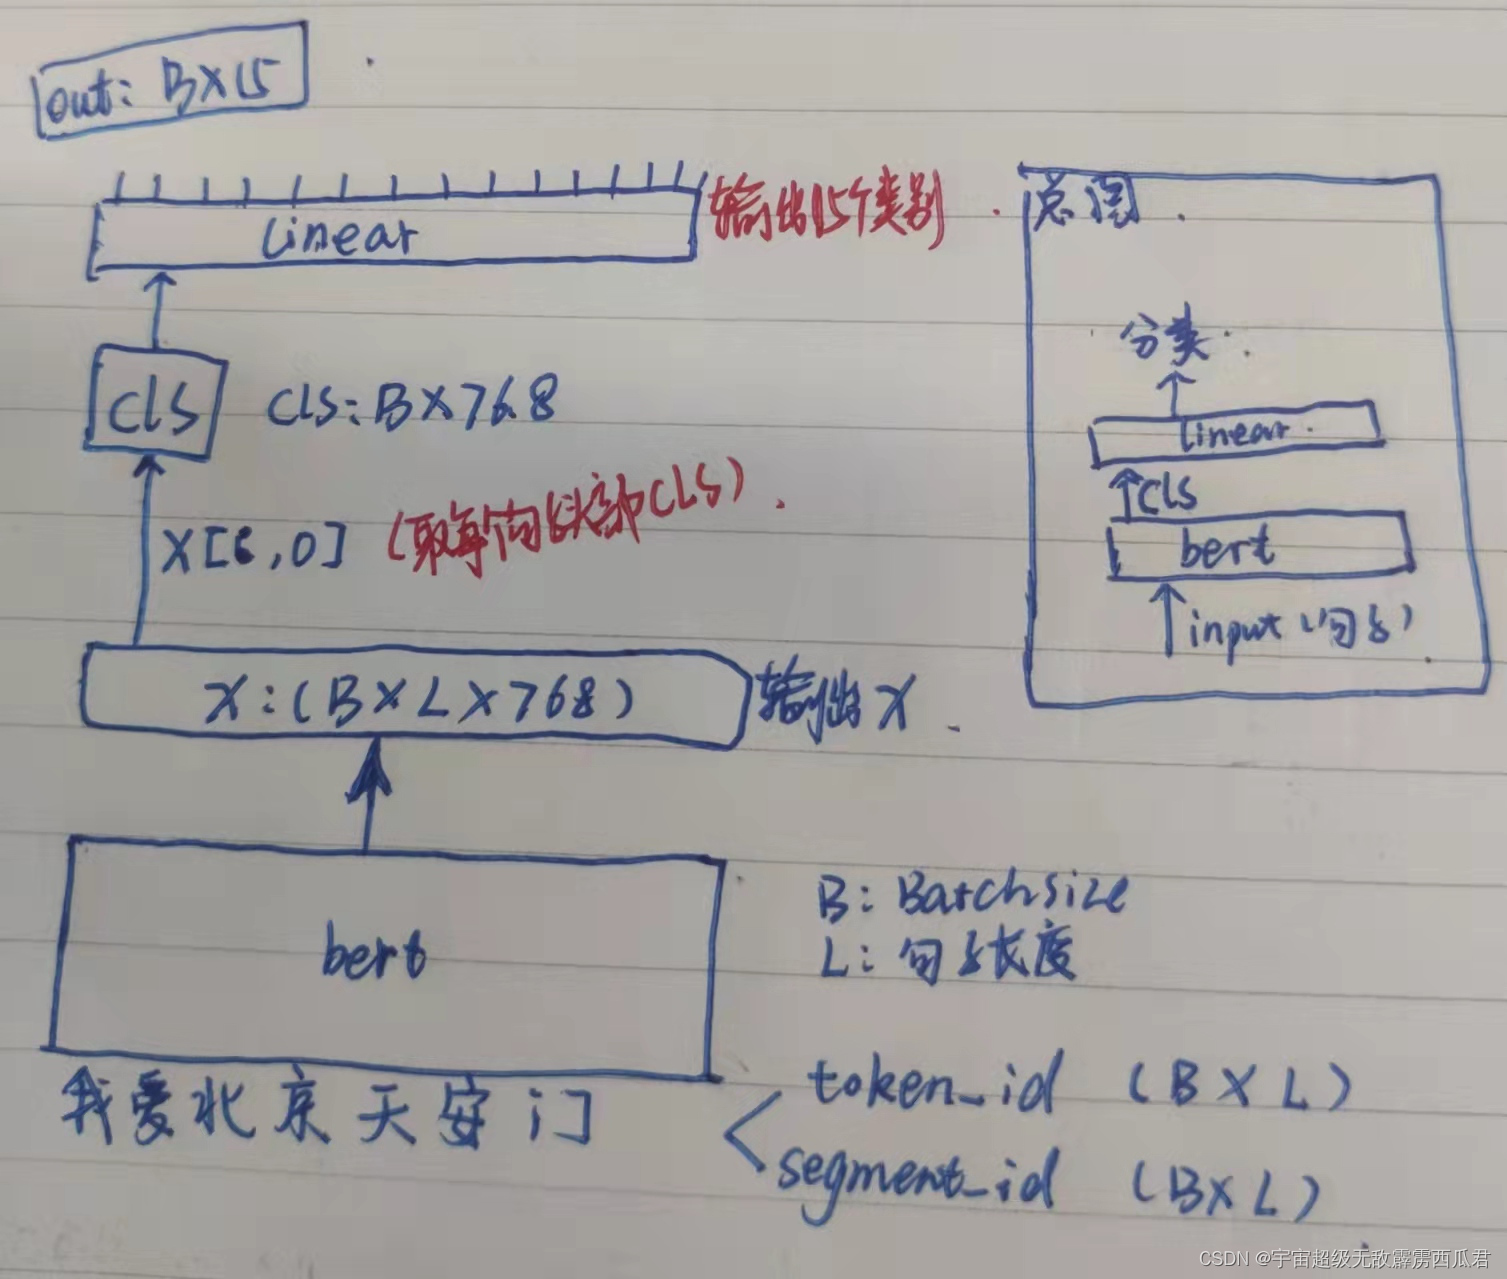 out: B×15
linear
输出15个类别
cls
cls: B×768
X[:,0]
(取每个句子头部CLS)
X:(B×L×768)
输出X
bert
我爱北京天安门
B: Batchsize
L: 句子长度
token_id (B×L)
segment_id (B×L)
总图
分类
linear
cls
bert
input (句子)
CSDN @宇宙超级无敌霹雳西瓜君